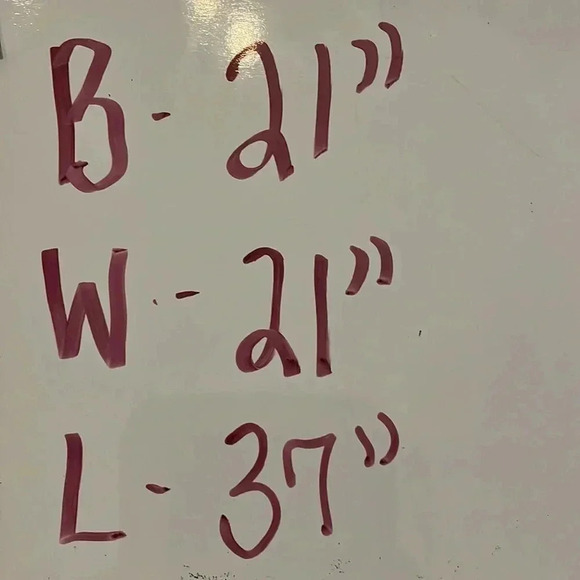 B - 21"
W - 21"
L - 37"